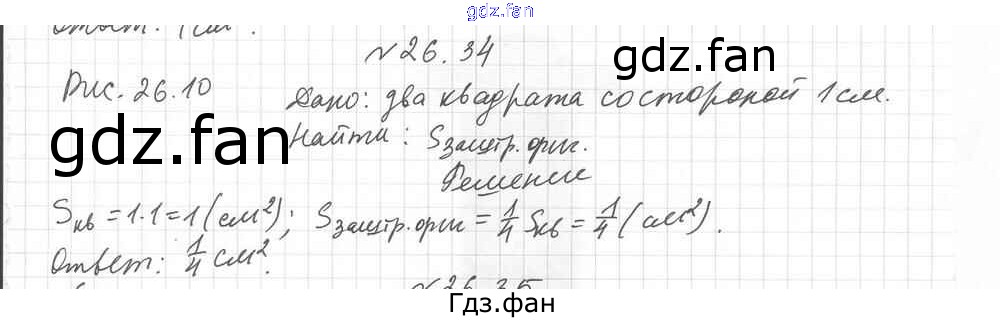 gdz.fan
Ответ: 1 см².
N 26.34
gdz.fan
Рис. 26.10
Дано: два квадрата со стороной 1 см.
gdz.fan
Найти: Sзаштр.фиг.
Решение
Sкв = 1·1 = 1 (см²); Sзаштр.фиг = 1/4 Sкв = 1/4 (см²).
Ответ: 1/4 см².
N 26.35
Гдз.фан